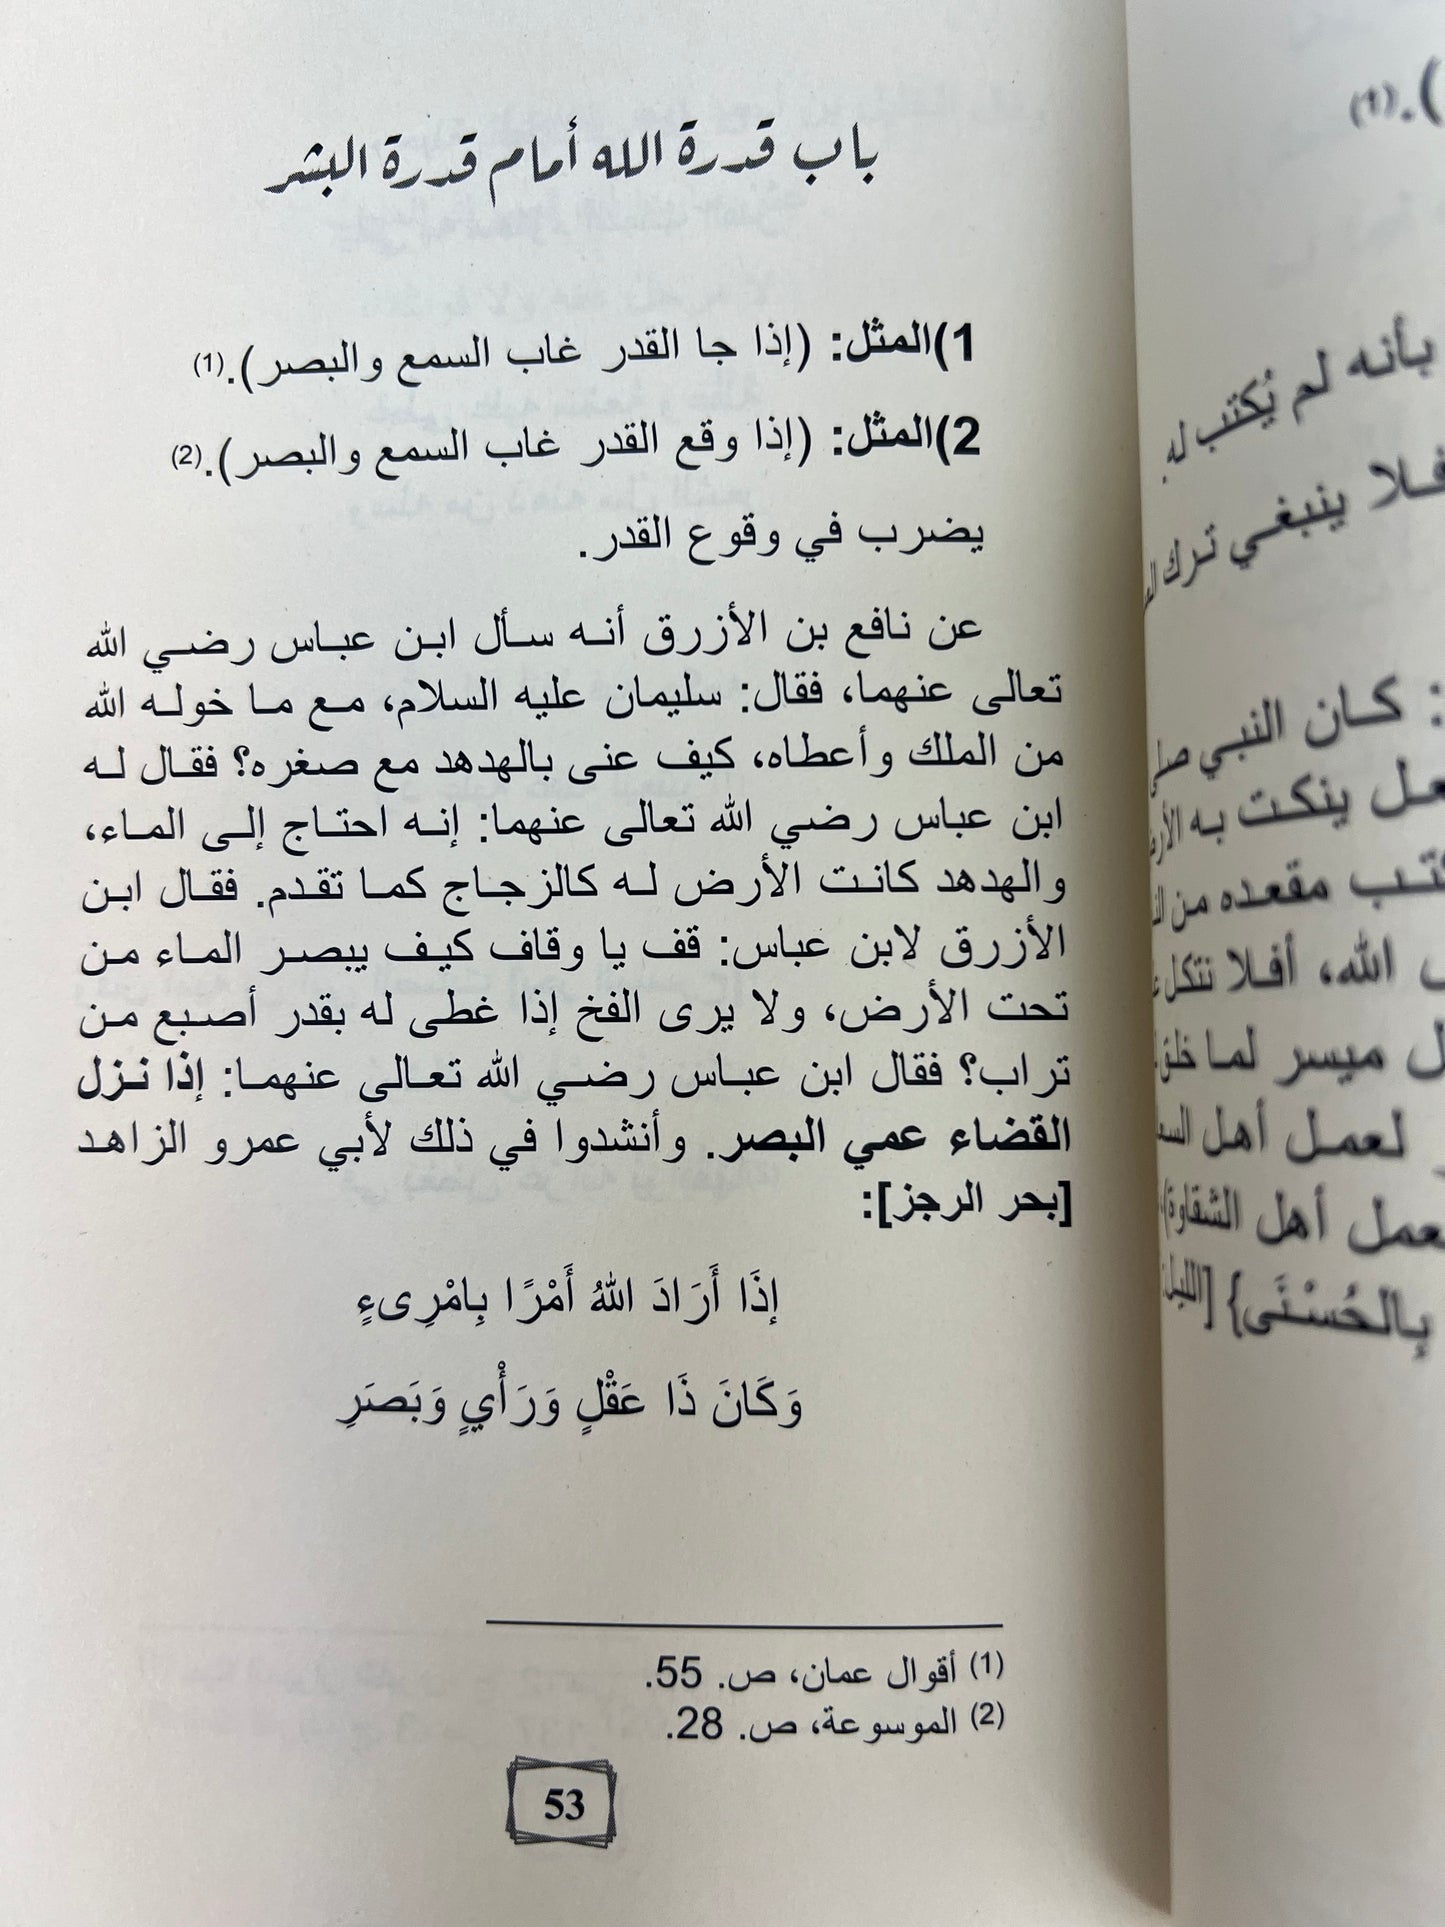 باب قدرة الله أمام قدرة البشر
1)المثل: (إذا جا القدر غاب السمع والبصر).(1)
2)المثل: (إذا وقع القدر غاب السمع والبصر).(2)
يضرب في وقوع القدر.
عن نافع بن الأزرق أنه سأل ابن عباس رضي الله
تعالى عنهما، فقال: سليمان عليه السلام، مع ما خوله الله
من الملك وأعطاه، كيف عنى بالهدهد مع صغره؟ فقال له
ابن عباس رضي الله تعالى عنهما: إنه احتاج إلى الماء،
والهدهد كانت الأرض له كالزجاج كما تقدم. فقال ابن
الأزرق لابن عباس: قف يا وقاف كيف يبصر الماء من
تحت الأرض، ولا يرى الفخ إذا غطى له بقدر أصبع من
تراب؟ فقال ابن عباس رضي الله تعالى عنهما: إذا نزل
القضاء عمي البصر. وأنشدوا في ذلك لأبي عمرو الزاهد
[بحر الرجز]:
إذَا أَرَادَ اللهُ أَمْرًا بِامْرِىءٍ
وَكَانَ ذَا عَقْلٍ وَرَأْيٍ وَبَصَرِ
(1) أقوال عمان، ص. 55.
(2) الموسوعة، ص. 28.
53
بأنه لم يُكتب له
فلا ينبغي ترك
: كان النبي صلى
ينكت به
مقعده من
الله، أفلا نتكل
ميسر لما خلق
لعمل أهل
أهل الشقاوة)
بِالحُسْنَى} [الليل